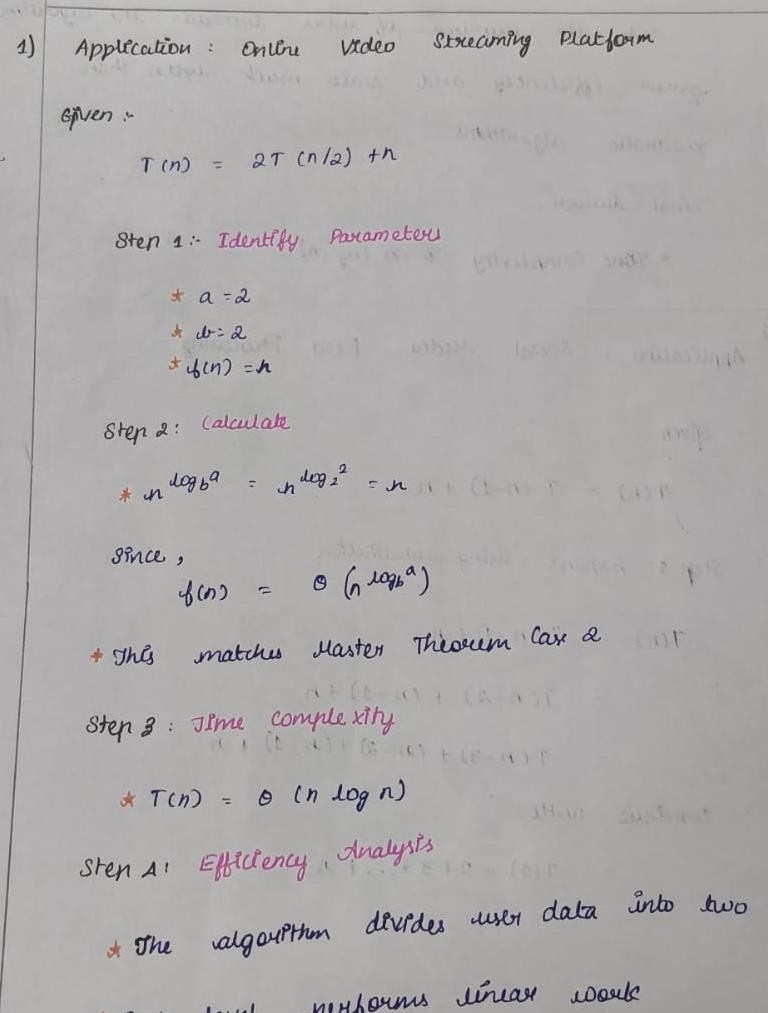 1) Application : Online Video Streaming Platform
Given :-
T(n) = 2T (n/2) + n
Step 1 :- Identify Parameters
* a = 2
* b = 2
* f(n) = n
Step 2 : Calculate
* n^log_b a = n^log_2 2 = n
Since ,
f(n) = θ (n^log_b a)
* This matches Master Theorem Case 2
Step 3 : Time Complexity
* T(n) = θ (n log n)
Step 4 : Efficiency Analysis
* The algorithm divides user data into two
level performs linear work